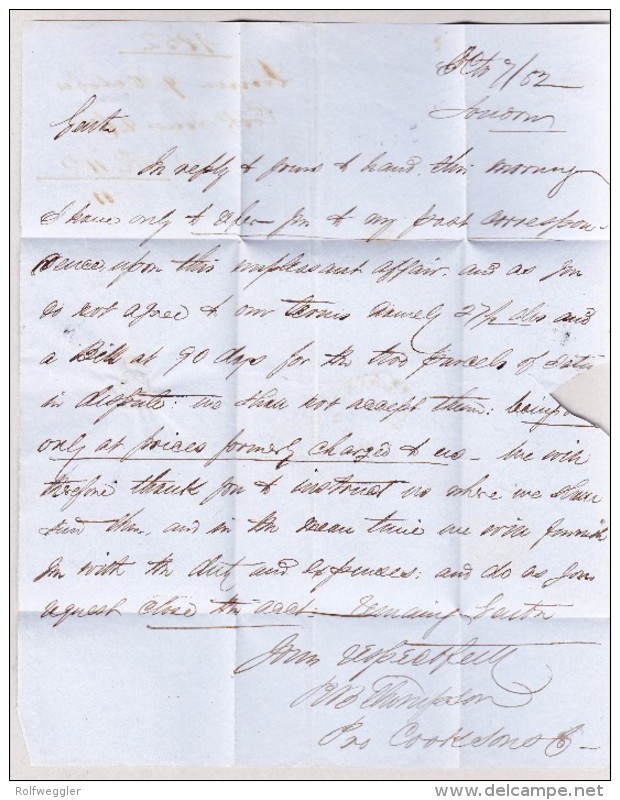 Octo 7/52
London
Gents
In reply to yours to hand this morning
I have only to refer you to my past correspon-
dence, upon this unpleasant affair. and as you
do not agree to our terms namely 27/ dis and
a Bill at 90 days for the two parcels of Satin
in dispute: we shall not accept them: being
only at prices formerly charged to us - We will
therefore thank you to instruct us where we shall
send them, and in the mean time we will furnish
you with the duty and expences: and do as you
request close the acct. remaing Gents
Yours respectfully
Thompson
Pro Cook Sons & Co
Rolfweggler
www.delcampe.net